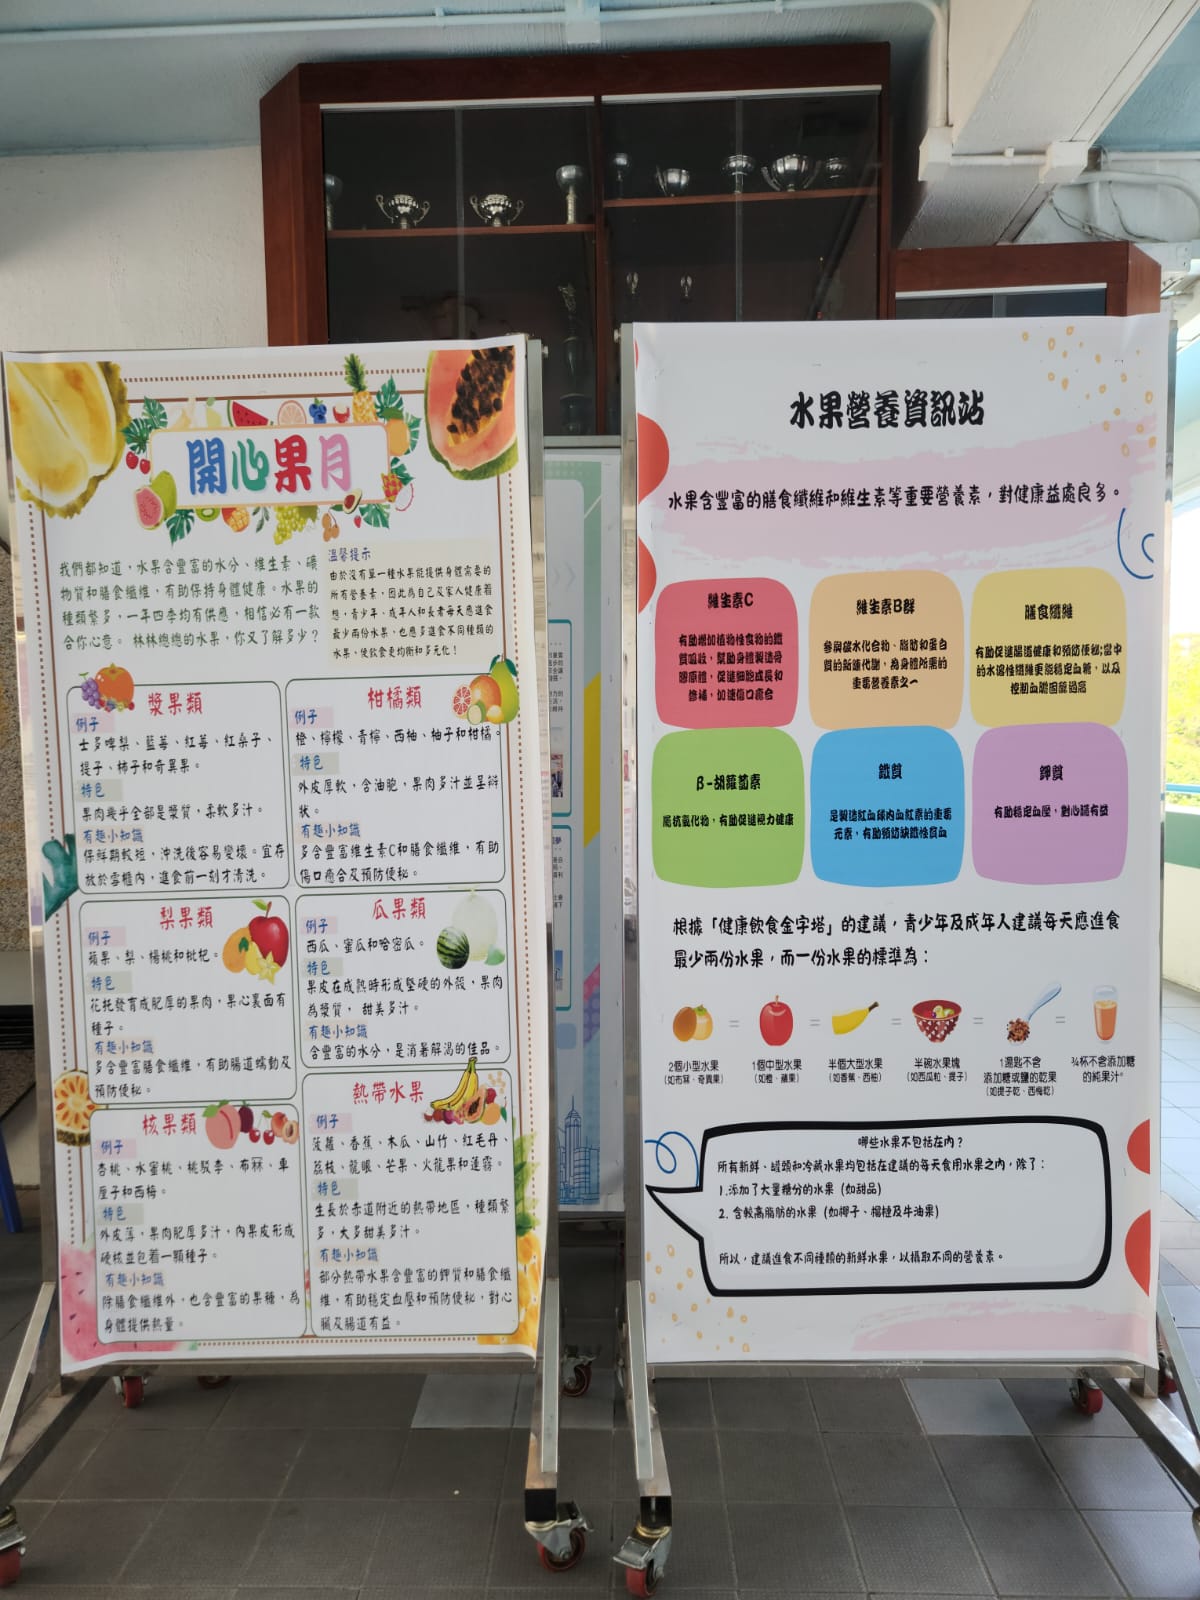 開心果月
我們都知道，水果含豐富的水分、維生素、礦
物質和膳食纖維，有助保持身體健康。水果的
種類繁多，一年四季均有供應，相信必有一款
合你心意。 林林總總的水果，你又了解多少？
溫馨提示
由於沒有單一種水果能提供身體需要的
所有營養素，因此為自己及家人健康着
想，青少年、成年人和長者每天應進食
最少兩份水果，也應多進食不同種類的
水果，使飲食更均衡和多元化！
漿果類
例子
士多啤梨、藍莓、紅莓、紅桑子、
提子、柿子和奇異果。
特色
果肉幾乎全部是漿質，柔軟多汁。
有趣小知識
保鮮期較短，沖洗後容易變壞。宜存
放於雪櫃內，進食前一刻才清洗。
柑橘類
例子
橙、檸檬、青檸、西柚、柚子和柑橘。
特色
外皮厚軟，含油胞，果肉多汁並呈瓣
狀。
有趣小知識
多含豐富維生素C和膳食纖維，有助
傷口癒合及預防便秘。
梨果類
例子
蘋果、梨、楊桃和枇杷。
特色
花托發育成肥厚的果肉，果心裏面有
種子。
有趣小知識
多含豐富膳食纖維，有助腸道蠕動及
預防便秘。
瓜果類
例子
西瓜、蜜瓜和哈密瓜。
特色
果皮在成熟時形成堅硬的外殼，果肉
為漿質， 甜美多汁。
有趣小知識
含豐富的水分，是消暑解渴的佳品。
核果類
例子
杏桃、水蜜桃、桃駁李、布冧、車
厘子和西梅。
特色
外皮薄，果肉肥厚多汁，內果皮形成
硬核並包着一顆種子。
有趣小知識
除膳食纖維外，也含豐富的果糖，為
身體提供熱量。
熱帶水果
例子
菠蘿、香蕉、木瓜、山竹、紅毛丹、
荔枝、龍眼、芒果、火龍果和蓮霧。
特色
生長於赤道附近的熱帶地區，種類繁
多，大多甜美多汁。
有趣小知識
部分熱帶水果含豐富的鉀質和膳食纖
維，有助穩定血壓和預防便秘，對心
臟及腸道有益。
水果營養資訊站
水果含豐富的膳食纖維和維生素等重要營養素，對健康益處良多。
維生素C
有助增加植物性食物的鐵
質吸收，幫助身體製造骨
膠原體，促進細胞成長和
修補，加速傷口癒合
維生素B群
參與碳水化合物、脂肪和蛋白
質的新陳代謝，為身體所需的
重要營養素之一
膳食纖維
有助促進腸道健康和預防便秘;當中
的水溶性纖維更能穩定血糖，以及
控制血膽固醇過高
β-胡蘿蔔素
屬抗氧化物，有助促進視力健康
鐵質
是製造紅血球內血紅素的重要
元素，有助預防缺鐵性貧血
鉀質
有助穩定血壓，對心臟有益
根據「健康飲食金字塔」的建議，青少年及成年人建議每天應進食
最少兩份水果，而一份水果的標準為：
= = = = =
2個小型水果
(如布冧、奇異果)
1個中型水果
(如橙、蘋果)
半個大型水果
(如香蕉、西柚)
半碗水果塊
(如西瓜粒、提子)
1湯匙不含
添加糖或鹽的乾果
(如提子乾、西梅乾)
¾杯不含添加糖
的純果汁。
哪些水果不包括在內？
所有新鮮、罐頭和冷藏水果均包括在建議的每天食用水果之內，除了：
1.添加了大量糖分的水果（如甜品）
2. 含較高脂肪的水果（如椰子、榴槤及牛油果）
所以，建議進食不同種類的新鮮水果，以攝取不同的營養素。